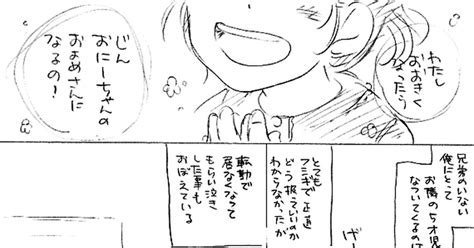 わたし
おおきく
なったら
じん
おにーちゃんの
およめさんに
なるの!
兄弟のいない
俺にとって
お隣の5才児が
なついてくるのは
とても
フシギで正直
どう扱っていいのか
わからなかったが
げー
転勤で
居なくなって
もらい泣き
した事も
おぼえている